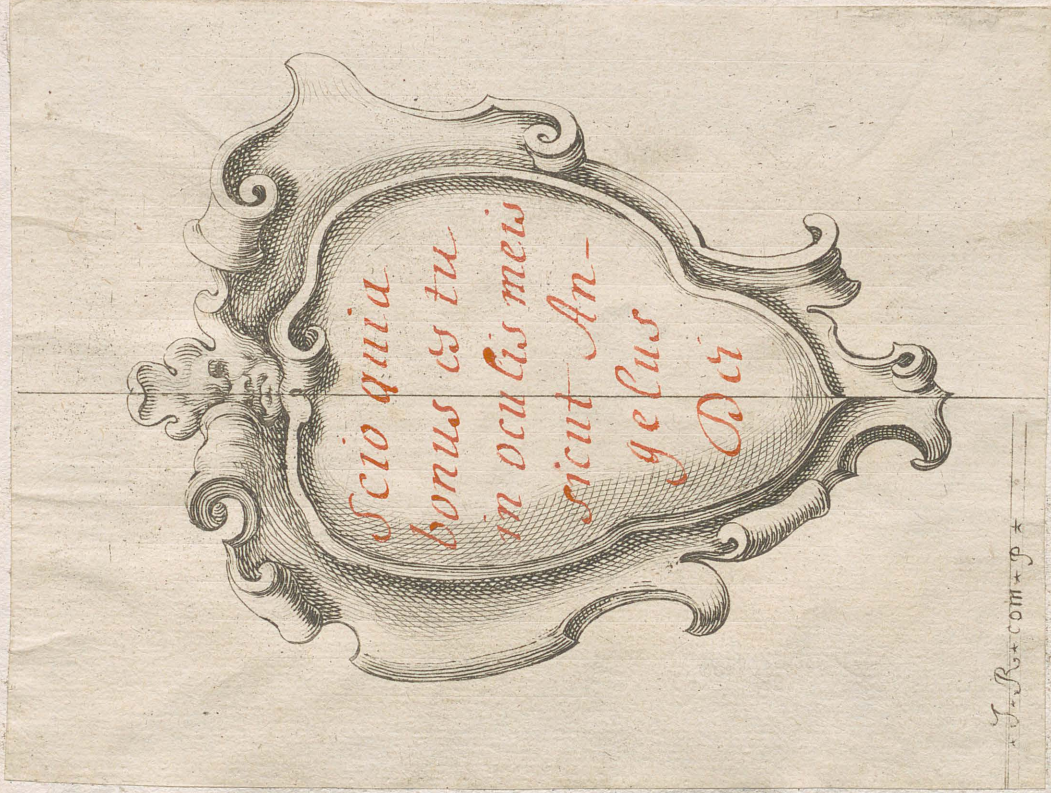 Scio quia
bonus es tu
in oculis meis
sicut An-
gelus
Dei
* J * R * com * P *